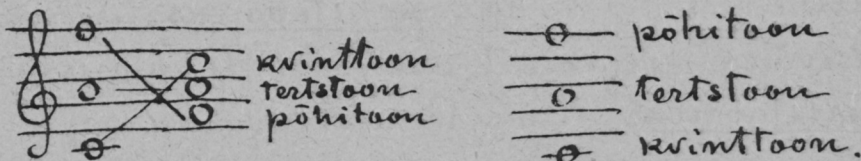 kvinttoon
tertstoon
põhitoon
põhitoon
tertstoon
kvinttoon.